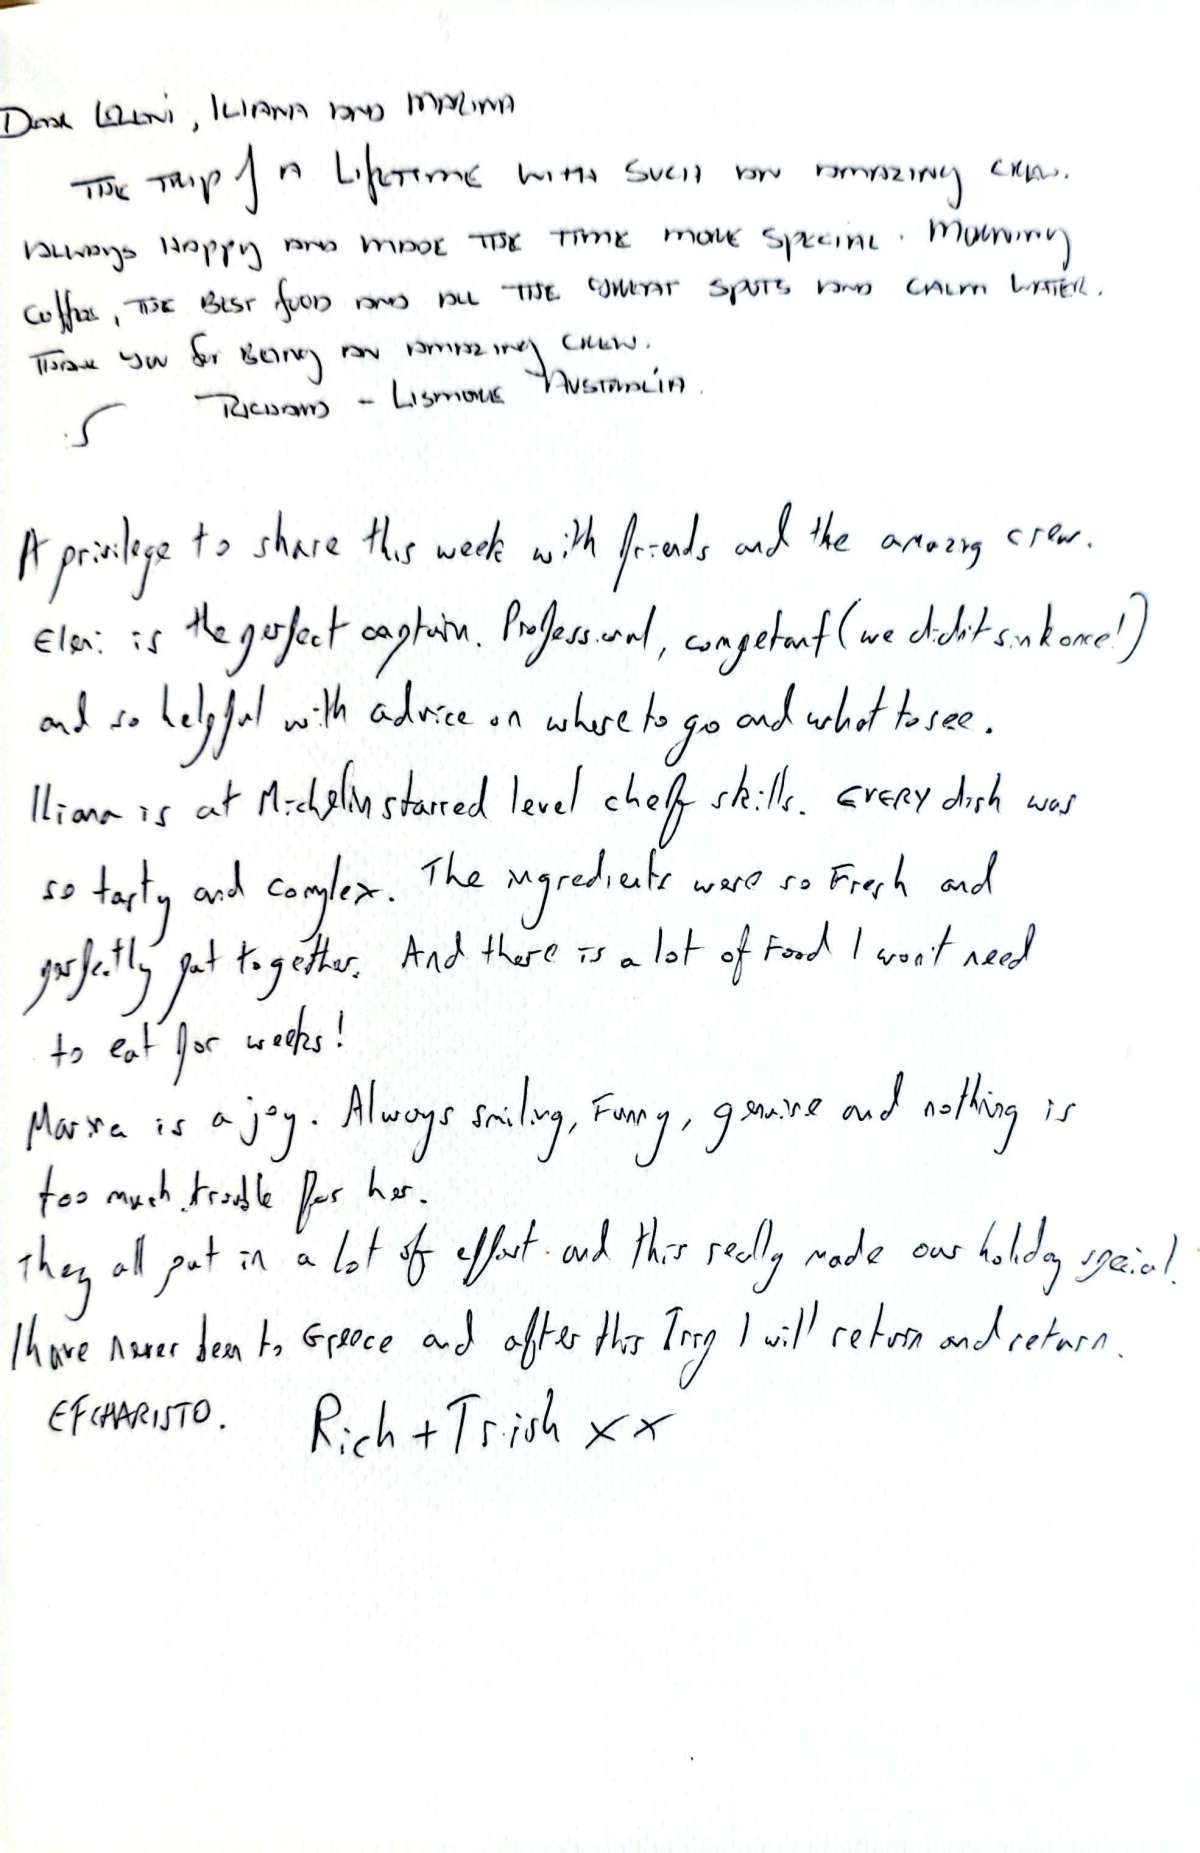 Dear Eleni, Iliana and Marina
The trip of a lifetime with such an amazing crew.
Always happy and made the time more special. Morning
coffee, the best food and all the great spots and calm water.
Thank you for being an amazing crew.
Richard - Lismore Australia.
A privilege to share this week with friends and the amazing crew.
Eleni is the perfect captain. Professional, competant (we didn't sink once!)
and so helpful with advice on where to go and what to see.
Iliana is at Michelin starred level cheff skills. EVERY dish was
so tasty and complex. The ingredients were so Fresh and
perfectly put together. And there is a lot of Food I won't need
to eat for weeks!
Marina is a joy. Always smiling, Funny, genuine and nothing is
too much trouble for her.
They all put in a lot of effort and this really made our holiday special.
I have never been to Greece and after this Trip I will return and return.
EFCHARISTO. Rich + Trish xx